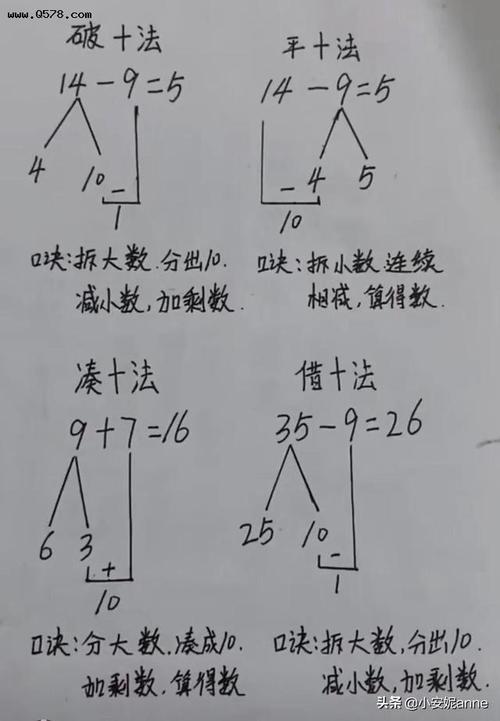 www.0578.com
破十法
14-9=5
4 10
-
1
口诀:拆大数.分出10.
减小数,加剩数.
平十法
14-9=5
- 4 5
10
口诀:拆小数.连续
相减,算得数.
凑十法
9+7=16
6 3
+
10
口诀:分大数,凑成10.
加剩数.算得数
借十法
35-9=26
25 10
-
1
口诀:拆大数,分出10.
减小数,加剩数.
头条 @小安妮anne